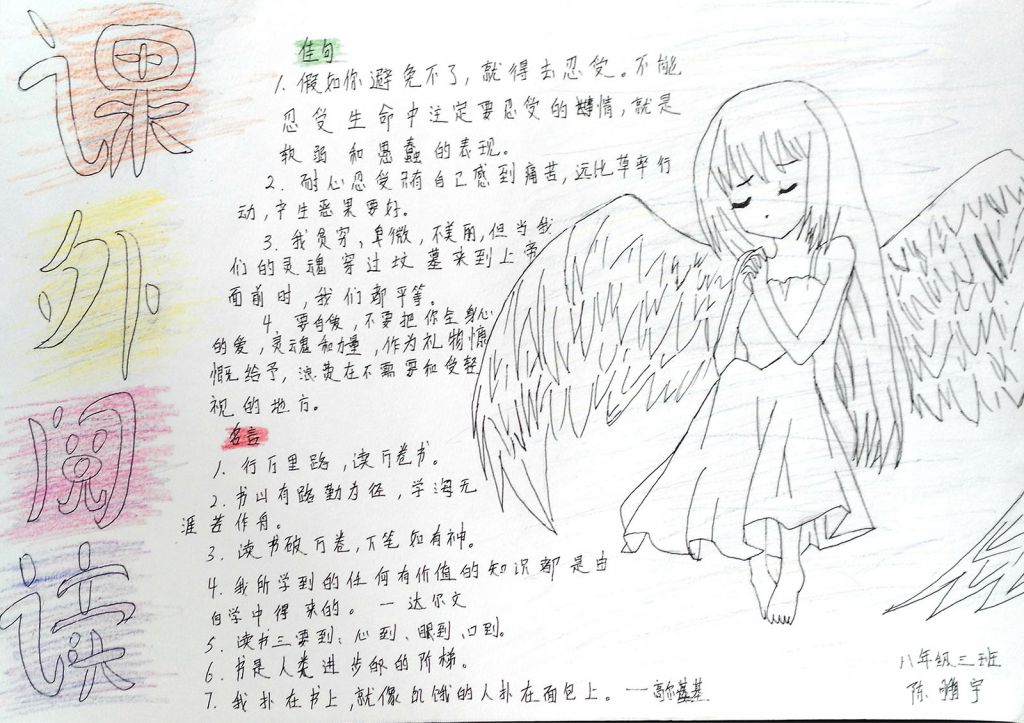 课外阅读
佳句
1. 假如你避免不了，就得去忍受。不能
忍受生命中注定要忍受的事情，就是
软弱和愚蠢的表现。
2. 耐心忍受只有自己感到痛苦，远比草率行
动，产生恶果要好。
3. 我贫穷，卑微，不美丽，但当我
们的灵魂穿过坟墓来到上帝
面前时，我们都平等。
4. 要自爱，不要把你全身心
的爱，灵魂和力量，作为礼物慷
慨给予，浪费在不需要和受轻
视的地方。
名言
1. 行万里路，读万卷书。
2. 书山有路勤为径，学海无
涯苦作舟。
3. 读书破万卷，下笔如有神。
4. 我所学到的任何有价值的知识都是由
自学中得来的。—达尔文
5. 读书三要到：心到、眼到、口到。
6. 书是人类进步的的阶梯。
7. 我扑在书上，就像饥饿的人扑在面包上。—高尔基
八年级三班
陈 宇